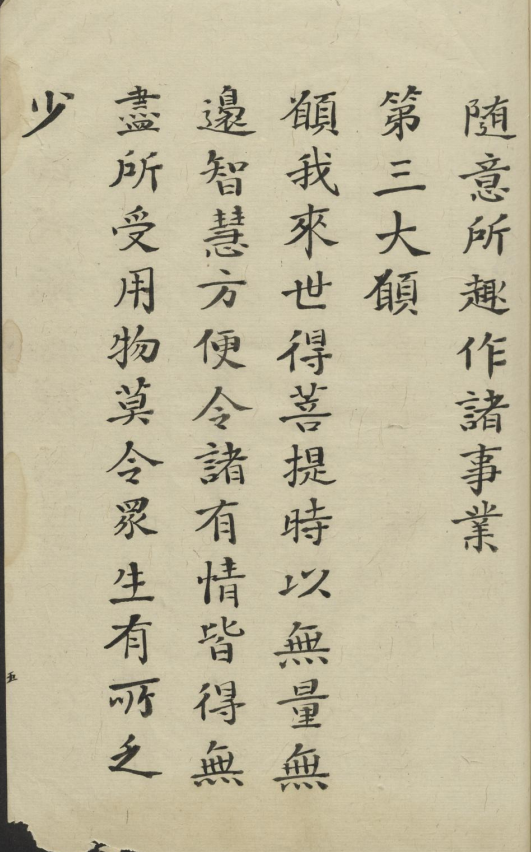 隨意所趣作諸事業
第三大願
願我來世得菩提時以無量無
邊智慧方便令諸有情皆得無
盡所受用物莫令眾生有所乏
少
五